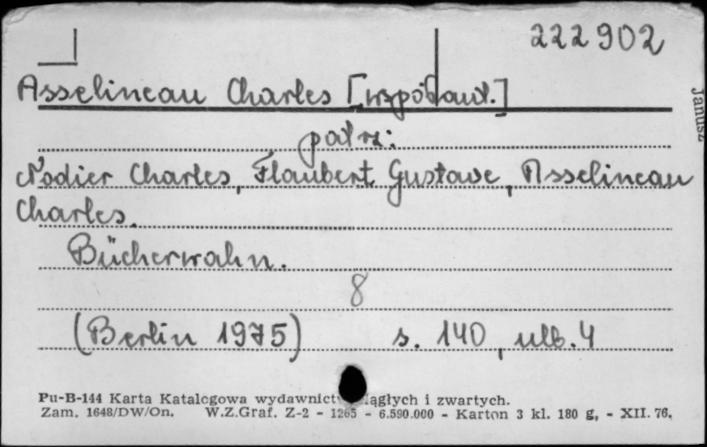 222902
Asselineau Charles [współaut.]
patrz:
Nodier Charles, Flaubert Gustave, Asselineau
Charles.
Bücherwahn.
8
(Berlin 1975) s. 140, nlb. 4
Pu-B-144 Karta Katalogowa wydawnict ciągłych i zwartych.
Zam. 1648/DW/On. W.Z.Graf. Z-2 - 1265 - 6.590.000 - Karton 3 kl. 180 g, - XII. 76.
Janusz